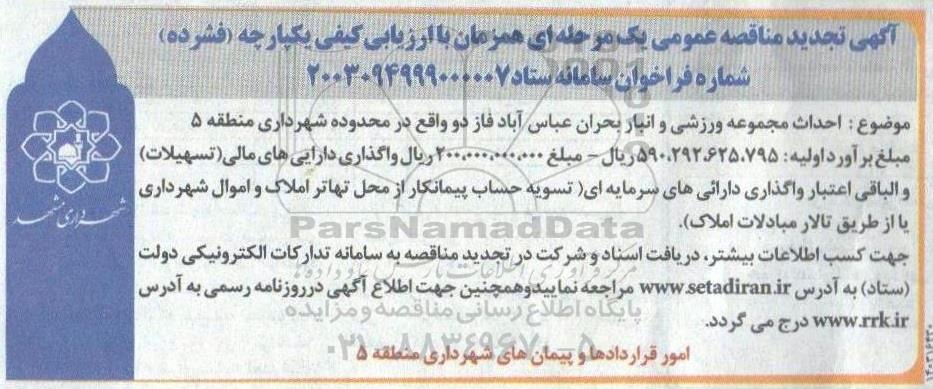 آگهی تجدید مناقصه عمومی یک مرحله ای همزمان با ارزیابی کیفی یکپارچه (فشرده)
شماره فراخوان سامانه ستاد ۲۰۰۳۰۹۴۹۹۹۰۰۰۰۰۷
موضوع : احداث مجموعه ورزشی و انبار بحران عباس آباد فاز دو واقع در محدوده شهرداری منطقه ۵
مبلغ برآورد اولیه : ۵۹۰.۲۹۲.۶۲۵.۷۹۵ ریال - مبلغ ۲۰۰.۰۰۰.۰۰۰.۰۰۰ ریال واگذاری دارایی های مالی (تسهیلات)
و الباقی اعتبار واگذاری دارائی های سرمایه ای( تسویه حساب پیمانکار از محل تهاتر املاک و اموال شهرداری
یا از طریق تالار مبادلات املاک).
جهت کسب اطلاعات بیشتر، دریافت اسناد و شرکت در تجدید مناقصه به سامانه تدارکات الکترونیکی دولت
(ستاد) به آدرس www.setadiran.ir مراجعه نماییدوهمچنین جهت اطلاع آگهی درروزنامه رسمی به آدرس
www.rrk.ir درج می گردد.
امور قراردادها و پیمان های شهرداری منطقه ۵
شهرداری مشهد
ParsNamadData
پایگاه اطلاع رسانی مناقصه و مزایده
۰۲۱-۸۸۳۴۹۶۷۰-۵